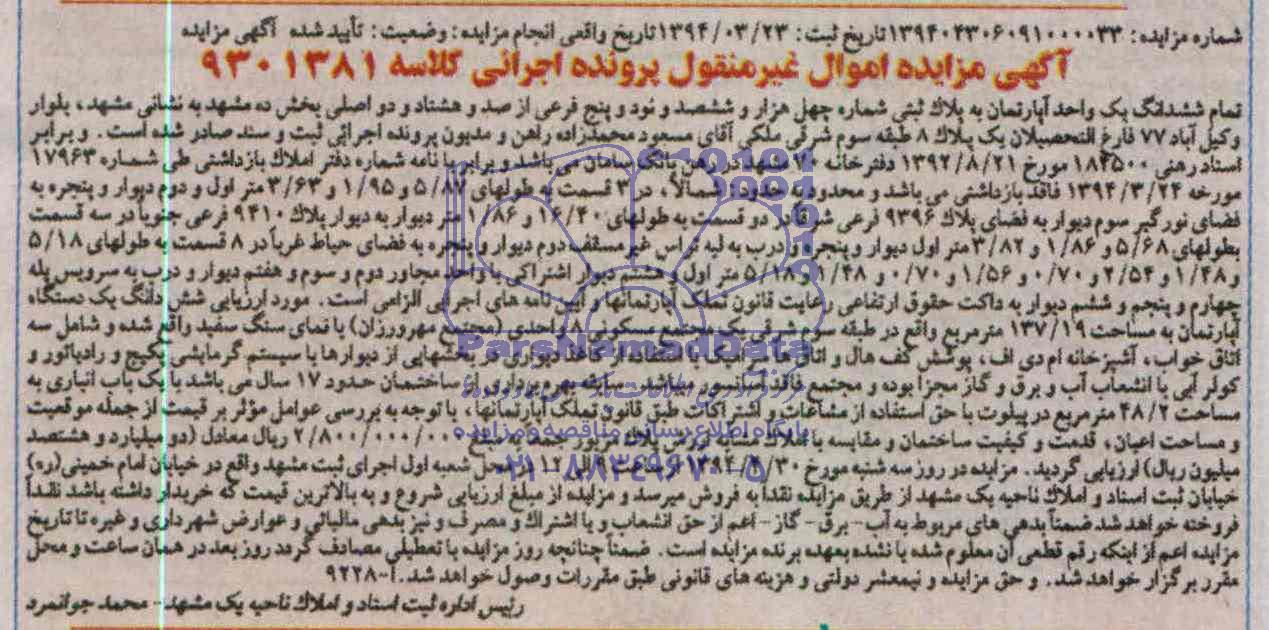 شماره مزایده: ۱۳۹۴۰۴۳۰۶۰۹۱۰۰۰۰۳۳ تاریخ ثبت: ۱۳۹۴/۰۳/۲۳ تاریخ واقعی انجام مزایده: وضعیت: تأییدشده آگهی مزایده
آگهی مزایده اموال غیرمنقول پرونده اجرائی کلاسه ۹۳۰۱۳۸۱
تمام ششدانگ یک واحد آپارتمان به پلاک ثبتی شماره چهل هزار و ششصد و نود و پنج فرعی از صد و هشتاد و دو اصلی بخش ده مشهد به نشانی مشهد، بلوار
وکیل آباد ۷۷ فارغ التحصیلان یک پلاک ۸ طبقه سوم شرقی ملکی آقای مسعود محمدزاده راهن و مدیون پرونده اجرائی ثبت و سند صادر شده است. و برابر
اسناد رهنی ۱۸۴۵۰۰ مورخ ۱۳۹۲/۸/۲۱ دفترخانه ۷۰ مشهد در رهن بانک سامان می باشد و برابر با نامه شماره دفتر املاک بازداشتی طی شماره ۱۷۹۶۳
مورخه ۱۳۹۴/۳/۲۴ فاقد بازداشتی می باشد و محدود به حدود: شمالاً، در ۳ قسمت به طولهای ۵/۸۷ و ۱/۹۵ و ۳/۶۳ متر اول و دوم دیوار و پنجره به
فضای نورگیر سوم دیوار به فضای پلاک ۹۳۹۶ فرعی شرقاً در دو قسمت به طولهای ۱۶/۴۰ و ۱/۸۶ متر دیوار به دیوار پلاک ۹۴۱۰ فرعی جنوباً در سه قسمت
بطولهای ۵/۶۸ و ۱/۸۶ و ۳/۸۲ متر اول دیوار و پنجره و درب به لبه تراس غیر مسقف دوم دیوار و پنجره به فضای حیاط غرباً در ۸ قسمت به طولهای ۵/۱۸
و ۱/۴۸ و ۲/۵۴ و ۰/۷۰ و ۱/۵۶ و ۰/۷۰ و ۱/۴۸ و ۵/۱۸ متر اول و هشتم دیوار اشتراکی با واحد مجاور دوم و سوم و هفتم دیوار و درب به سرویس پله
چهارم و پنجم و ششم دیوار به داکت حقوق ارتفاعی رعایت قانون تملک آپارتمانها و آیین نامه های اجرایی الزامی است. مورد ارزیابی شش دانگ یک دستگاه
آپارتمان به مساحت ۱۳۷/۱۹ مترمربع واقع در طبقه سوم شرقی یک مجتمع مسکونی ۸ واحدی (مجتمع مهرورزان) با نمای سنگ سفید واقع شده و شامل سه
اتاق خواب، آشپزخانه ام دی اف، پوشش کف هال و اتاق ها سرامیک با استفاده از کاغذ دیواری در بخشهایی از دیوارها با سیستم گرمایشی پکیج و رادیاتور و
کولر آبی با انشعاب آب و برق و گاز مجزا بوده و مجتمع فاقد آسانسور میباشد. سابقه بهره برداری از ساختمان حدود ۱۷ سال می باشد با یک باب انباری به
مساحت ۴۸/۲ مترمربع در پیلوت با حق استفاده از مشاعات و اشتراکات طبق قانون تملک آپارتمانها، با توجه به بررسی عوامل مؤثر بر قیمت از جمله موقعیت
و مساحت اعیان، قدمت و کیفیت ساختمان و مقایسه با املاک مشابه ارزش پلاک مزبور جمعاً به مبلغ ۲/۸۰۰/۰۰۰/۰۰۰ ریال معادل (دو میلیارد و هشتصد
میلیون ریال) ارزیابی گردید. مزایده در روز سه شنبه مورخ ۱۳۹۴/۴/۳۰ از ساعت ۹ الی ۱۲ در محل شعبه اول اجرای ثبت مشهد واقع در خیابان امام خمینی(ره)
خیابان ثبت اسناد و املاک ناحیه یک مشهد از طریق مزایده نقداً به فروش میرسد و مزایده از مبلغ ارزیابی شروع و به بالاترین قیمت که خریدار داشته باشد نقداً
فروخته خواهد شد ضمناً بدهی های مربوط به آب- برق- گاز- اعم از حق انشعاب و یا اشتراک و مصرف و نیز بدهی مالیاتی و عوارض شهرداری و غیره تا تاریخ
مزایده اعم از اینکه رقم قطعی آن معلوم شده یا نشده بعهده برنده مزایده است. ضمناً چنانچه روز مزایده با تعطیلی مصادف گردد روز بعد در همان ساعت و محل
مقرر برگزار خواهد شد. و حق مزایده و نیمعشر دولتی و هزینه های قانونی طبق مقررات وصول خواهد شد. آ-۹۲۲۸
رئیس اداره ثبت اسناد و املاک ناحیه یک مشهد- محمد جوانمرد
ParsNamadData
پایگاه اطلاع رسانی مناقصه و مزایده
۰۲۱-۸۸۳۴۹۶۷۰-۵